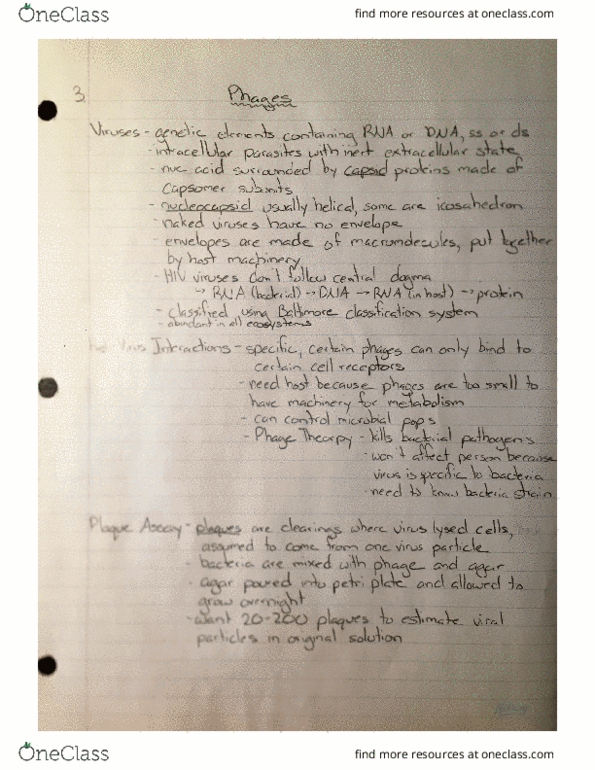 OneClass
find more resources at oneclass.com
3. Phages
Viruses - genetic elements containing RNA or DNA, ss or ds
- intracellular parasites with inert extracellular state
- nuc acid surrounded by capsid proteins made of
Capsomer subunits
- nucleocapsid usually helical, some are icosahedron
- naked viruses have no envelope
- envelopes are made of macromolecules, put together
by host machinery
- HIV viruses don't follow central dogma
→ RNA (bacterial) → DNA → RNA (in host) → protein
- classified using Baltimore classification system
- abundant in all ecosystems
Virus Interactions - specific, certain phages can only bind to
certain cell receptors
- need host because phages are too small to
have machinery for metabolism
- can control microbial pops
- Phage Thearpy - kills bacterial pathogens
- won't affect person because
virus is specific to bacteria
- need to know bacteria strain
Plaque Assay - plaques are clearings where virus lysed cells,
assumed to come from one virus particle
- bacteria are mixed with phage and agar
- agar poured into petri plate and allowed to
grow overnight
- want 20-200 plaques to estimate viral
particles in original solution
OneClass
find more resources at oneclass.com